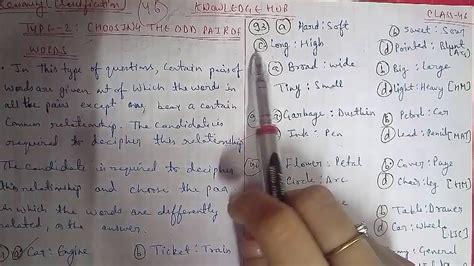 Reasoning (Classification)
46
KNOWLEDGE HUB
CLASS-46
TYPE-2: CHOOSING THE ODD PAIR OF
WORDS:-
• In this type of questions, certain pairs of
words are given out of which the words in
all the pairs except one, bear a certain
common relationship. The candidate is
required to decipher this relationship
The candidate is required to decipher
this relationship and choose the pair
in which the words are differently
related, as the answer.
1) a) Car: Engine
b) Ticket: Train
93) a) Hard: Soft
b) Sweet: Sour
c) Long: High
d) Pointed: Blunt
a) Broad: Wide
b) Big: Large
Tiny: Small
d) Light: Heavy [MH]
a) Garbage: Dustbin
b) Petrol: Car
Ink: Pen
d) Lead: Pencil [MH]
Flower: Petal
b) Cover: Page
Circle: Arc
d) Chair: Leg [MH]
b) Table: Drawer
d) Car: Wheel